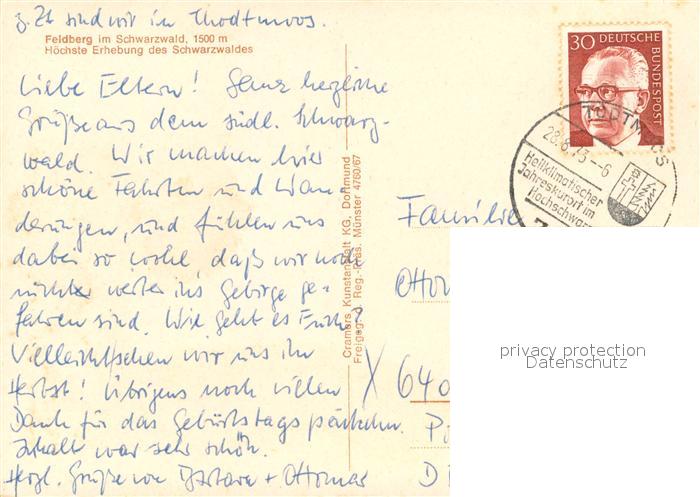 z. Zt sind wir in Thodtmoos.
Feldberg im Schwarzwald, 1500 m
Höchste Erhebung des Schwarzwaldes
Liebe Eltern! Ganz herzliche
Grüße aus dem südl. Schwarz-
wald. Wir machen hier
schöne Fahrten und Wan-
derungen, und fühlen uns
dabei so wohl daß wir noch
nicht weiter ins Gebirge ge-
fahren sind. Wie geht es Euch?
Vielleicht sehen wir uns im
Herbst! Übrigens noch vielen
Dank für das Geburtstagspäckchen.
Inhalt war sehr schön.
Herzl. Grüße von Barbara + Ottomar
Cramers Kunstanstalt KG, Dortmund
Freigeg. Reg.-Präs. Münster 4760/67
30 DEUTSCHE BUNDESPOST
TODTMOOS
28.8.73-6
Heilklimatischer
Jahreskurort im
Hochschwarz
Familie
Otto
X 640
D
privacy protection
Datenschutz